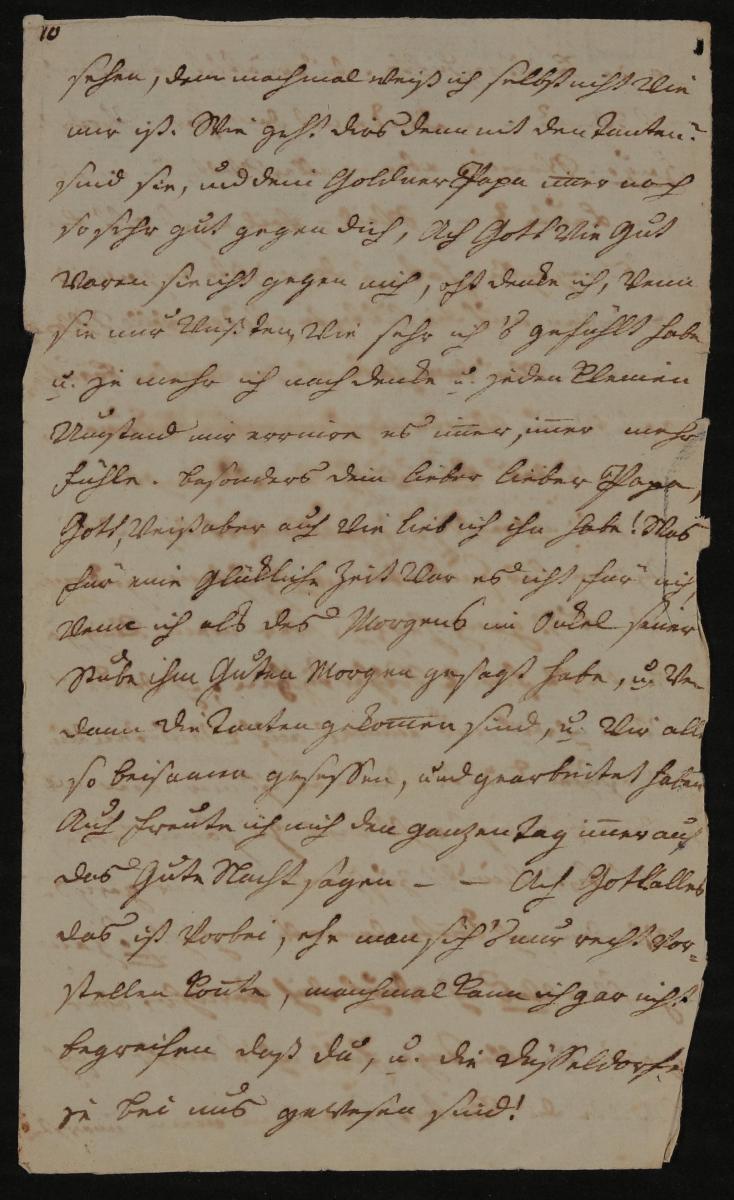 10
sehen, denn machmal weiß ich selbst nicht wie
mir ist. Wie geht dirs denn mit den Tanten?
sind sie, und dein Goldner Papa im̅er noch
so sehr gut gegen dich, Ach Gott wie Gut
waren sie nicht gegen mich, oft denke ich, wenn
sie nur wüßten, wie sehr ich's gefühlt habe
u. je mehr ich nach denke u. jeden kleinen
Umstand mir erinnre es im̅er, im̅er mehr
fühle. besonders dein lieber lieber Papa,
Gott, weiß aber auch wie lieb ich ihn habe! Was
für eine glükliche Zeit war es nicht für mich,
wenn ich als des Morgens in Onkel seiner
Stube ihm Guten Morgen gesagt habe, u.
dann die Tanten gekom̅en sind, u. wir alle
so beisamen gesessen, und gearbeitet haben
Auch freute ich mich den ganzen Tag im̅er auf
das Gute Nacht sagen – – Ach Gott alles
das ist vorbei, ehe man sich's nur recht vor=
stellen kon̅te, manchmal kann ich gar nicht
begreifen daß du, u. die Düsseldorfer
je bei uns gewesen sind!